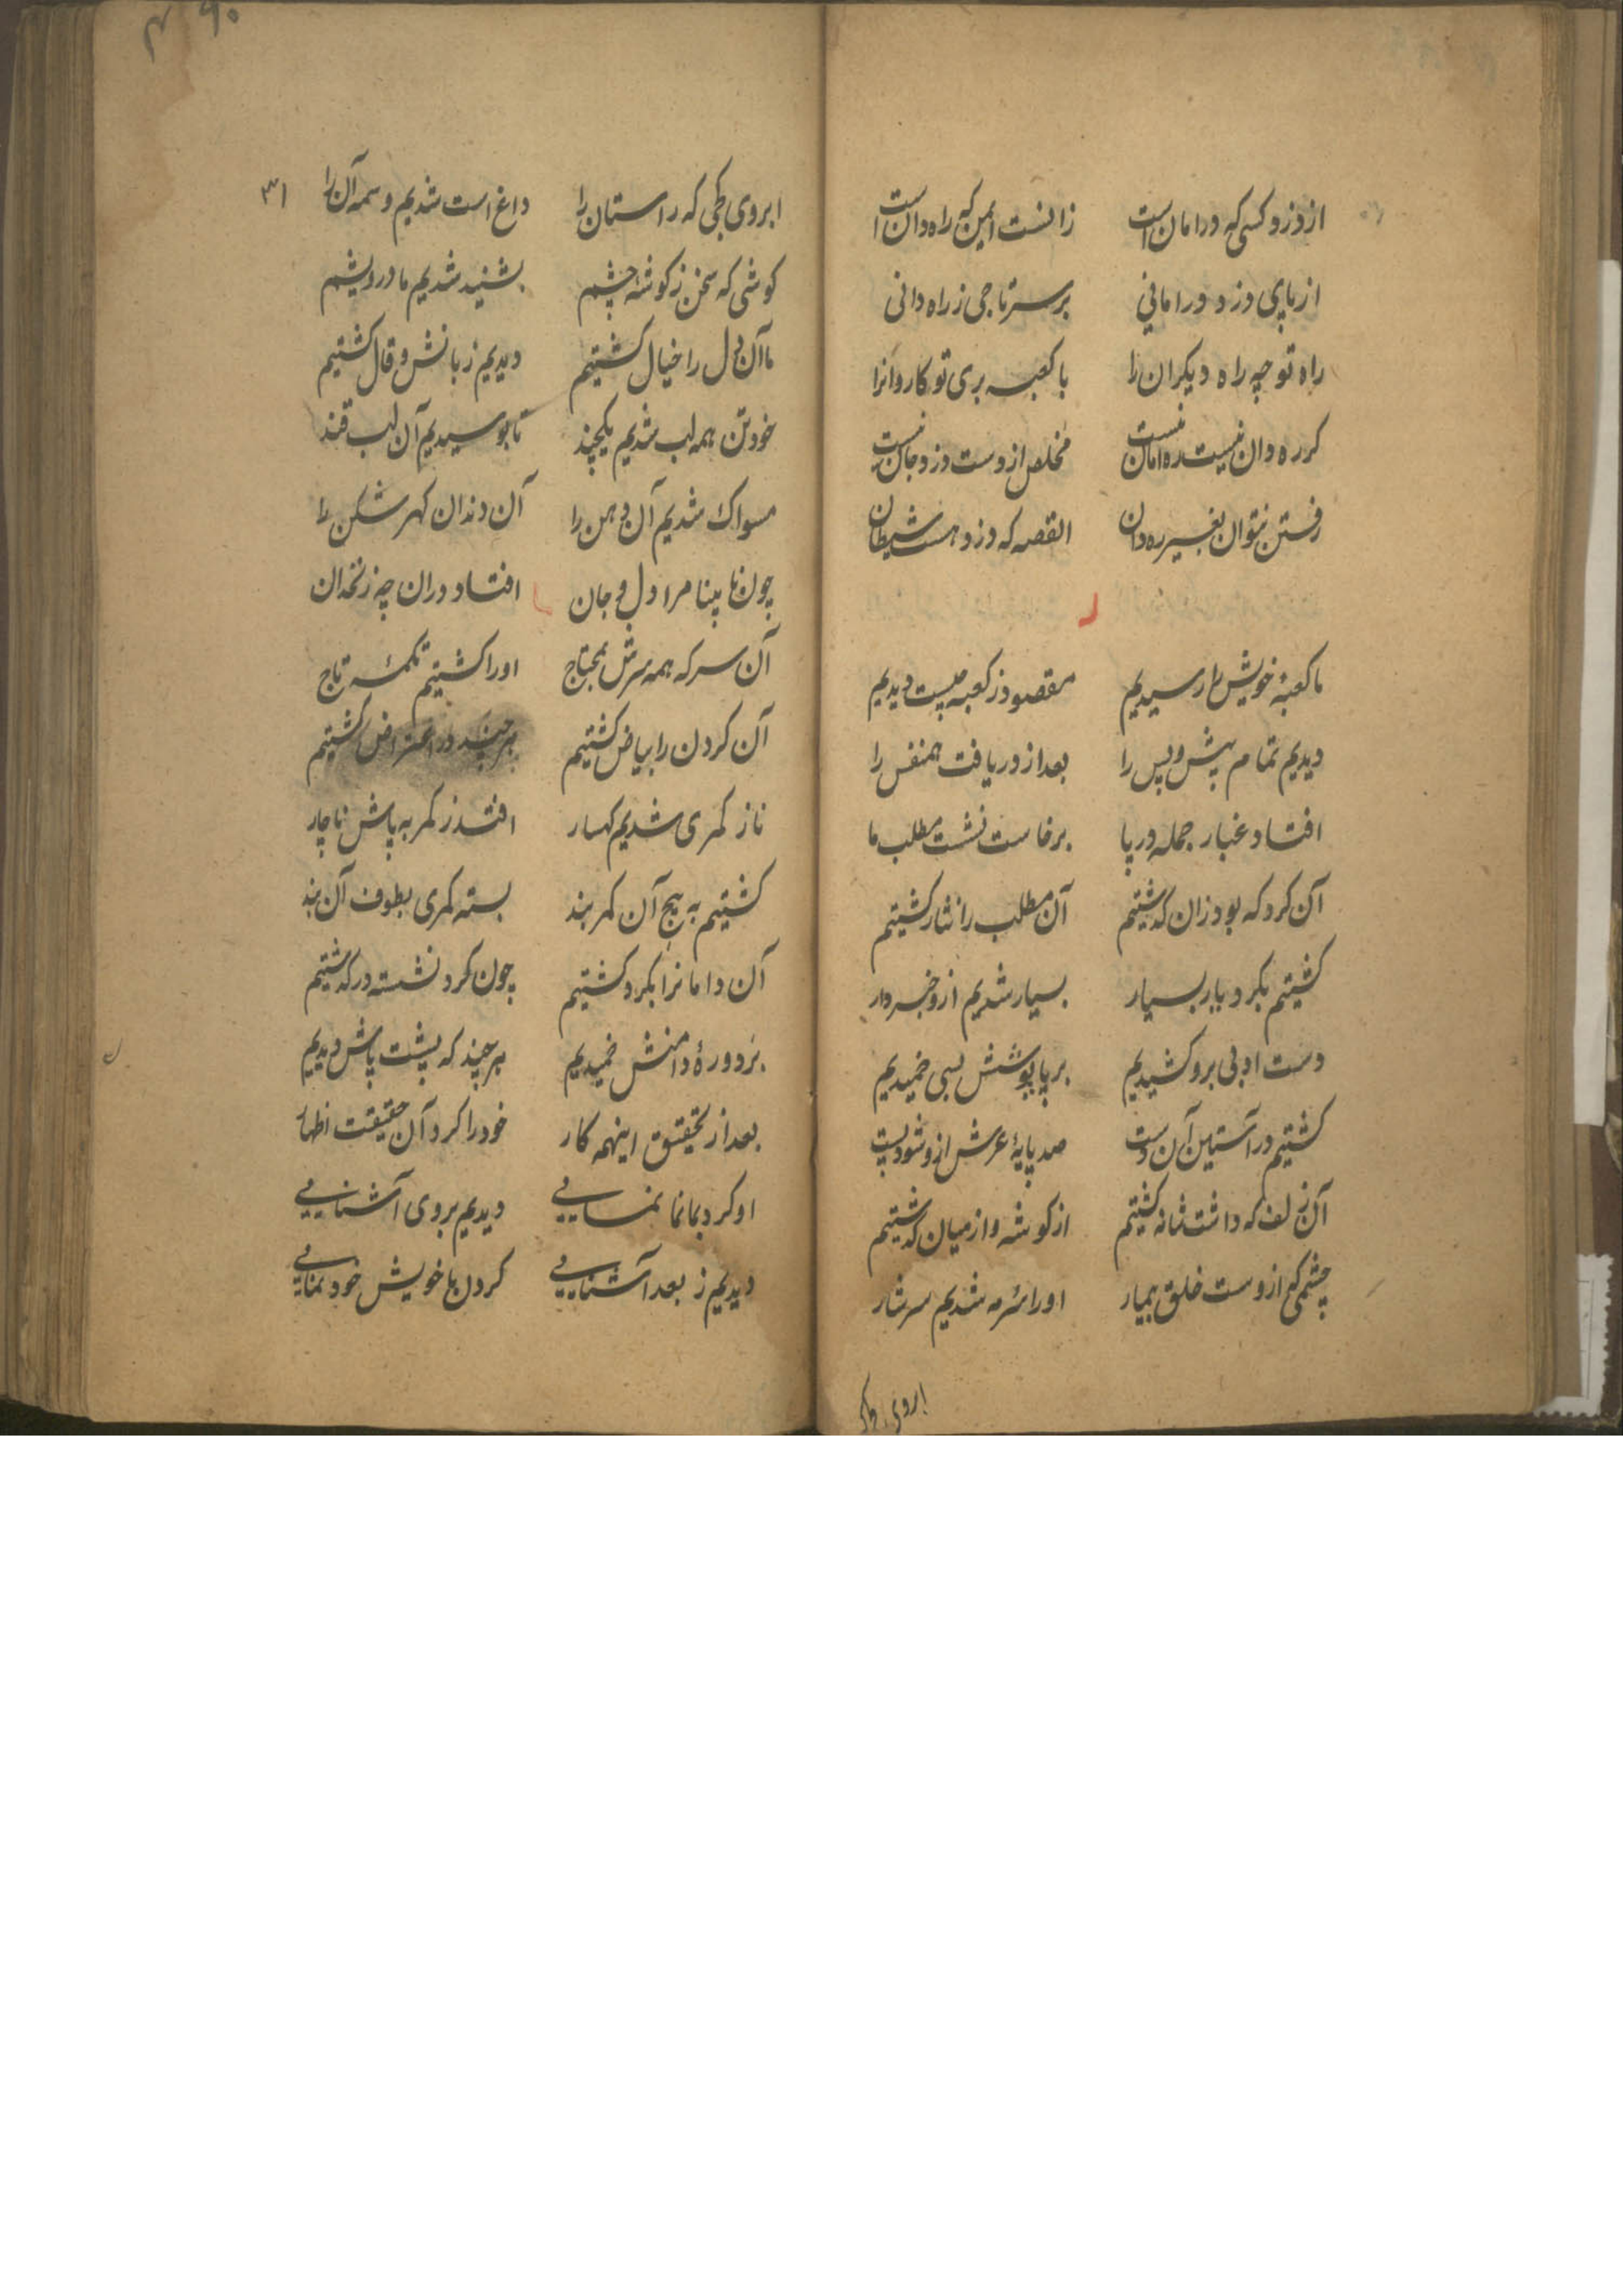 از دزد کسی که در امان است زانست ایمن که راه دان است
از پای دزد در امانی بر سر تاجی ز راه دانی
راه تو چه راه دیکران را با کعبه بری تو کاروانرا
کر ره دان نیست ره امان نیست مخلص از دست دزد جان نیست
رفتن نتوان بغیر ره دان القصه که دزد هست شیطان
ما کعبهٔ خویش را رسیدیم مقصود ز کعبه چیست دیدیم
دیدیم تمام پیش و پس را بعد از دریافت همنفس را
افتاد غبار جمله در پا برخاست نشست مطلب ما
آن کرد که بود زان کذشتیم آن مطلب را نثار کشتیم
کشتیم بکرد یار بسیار بسیار شدیم ازو خبردار
دست ادبی برو کشیدیم بر پاپوشش بسی خمیدیم
کشتیم در آستین آن دست صد پایهٔ عرش ازو شود پست
آن زلف که داشت شانه کشتیم از کوشه و از میان کذشتیم
چشمی که ازوست خلق بیمار او را سرمه شدیم سرشار
ابروی
۳۱
ابروی کجی که راستان را داغ است شدیم وسمه آن را
کوشی که سخن ز کوشهٔ چشم بشنید شدیم ما درو پشم
ما آن دل را خیال کشتیم دیدیم زبانش و قال کشتیم
خود تن همه لب شدیم یکچند تا بوسیدیم آن لب قند
مسواک شدیم آن دهن را آن دندان کهر شکن را
چون نابینا مرا دل و جان افتاد در ان چه زنخدان
آن سر که همه سرش بمحتاج او را کشتیم تکمهٔ تاج
آن کردن را بیاض کشتیم هر چند در اعتراض کشتیم
ناز کمری شدیم کهسار افتد ز کمر به پاش ناچار
کشتیم به هیچ آن کمربند بسته کمری بطوف آن بند
آن دامانرا بکرد کشتیم چون کرد نشسته در کذشتیم
بر دورهٔ دامنش خمیدیم هر چند که پشت پاش دیدیم
بعد از تحقیق اینهمه کار خود را کرد آن حقیقت اظهار
او کرد بما نما نمایی دیدیم بروی آشنایی
دیدیم ز بعد آشنایی کردن با خویش خود نمایی